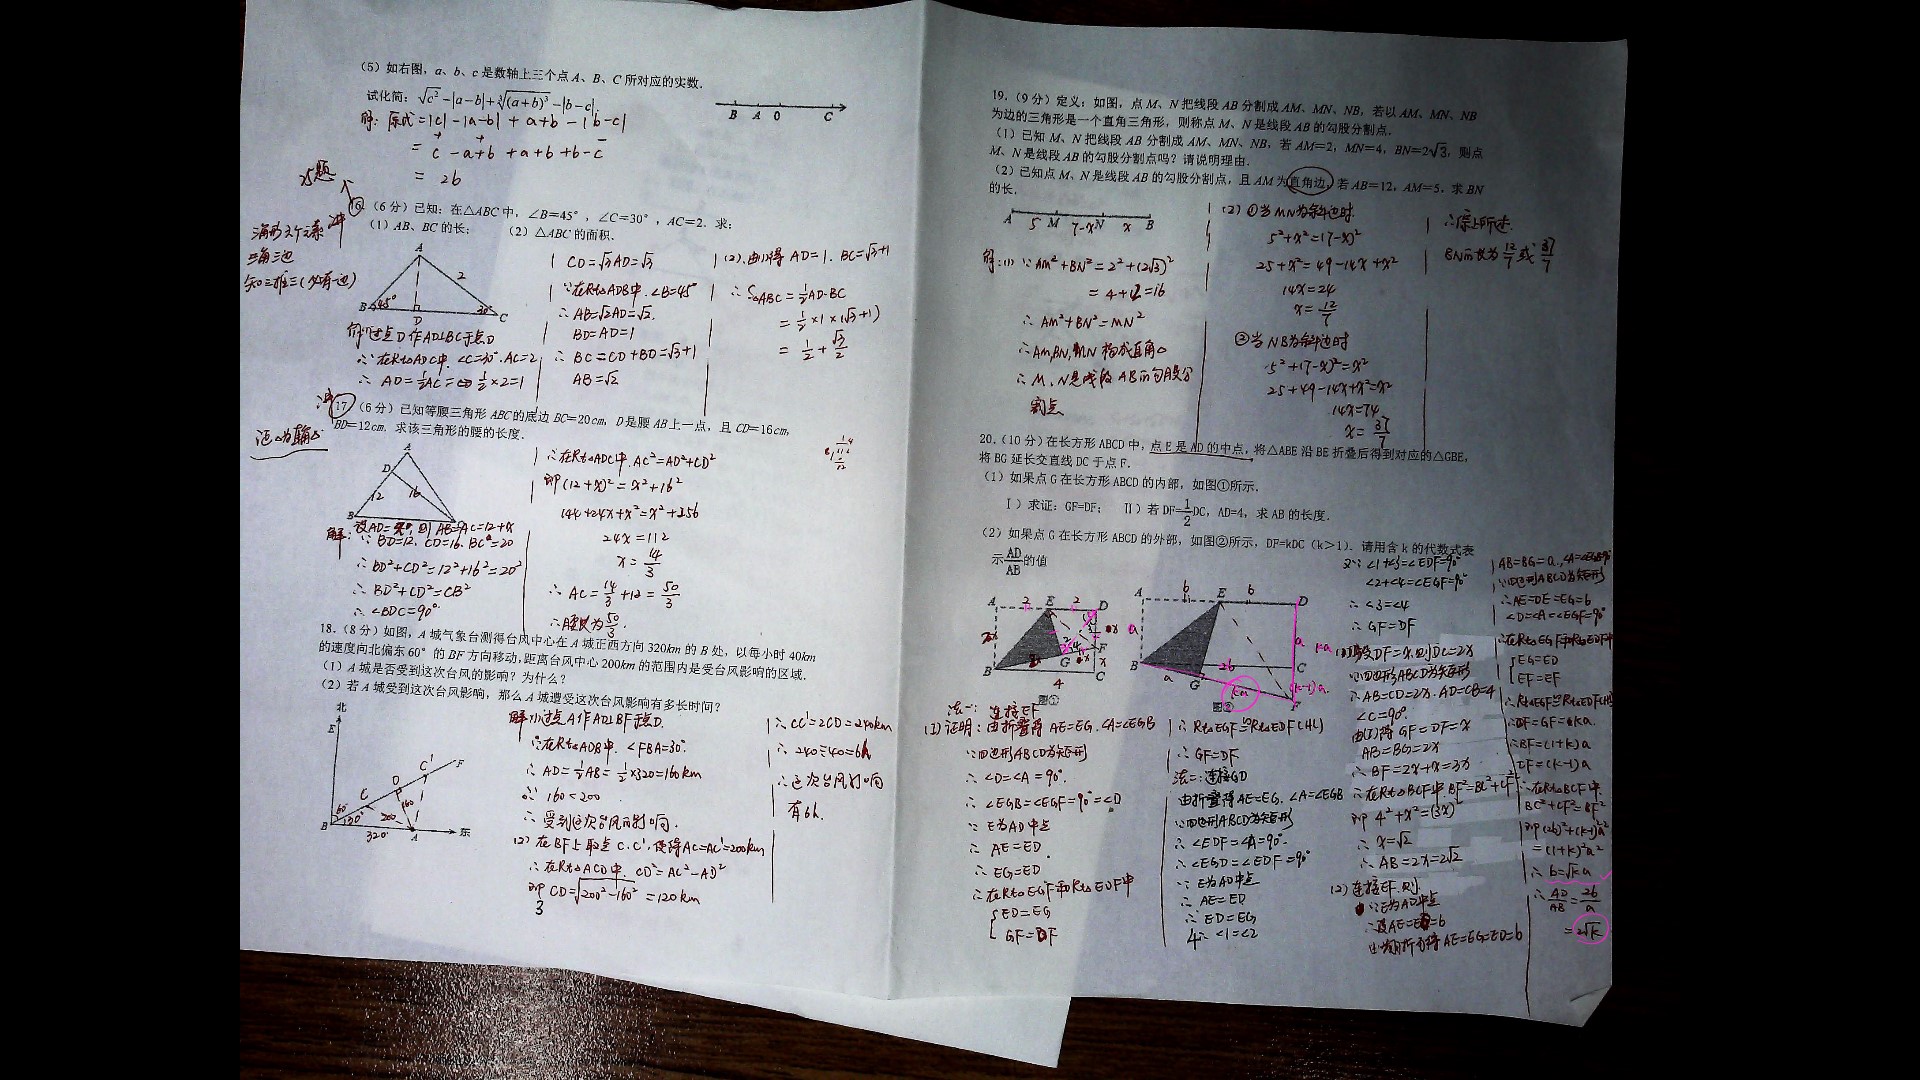 (5) 如右图，a、b、c 是数轴上三个点 A、B、C 所对应的实数.
试化简：√c² −|a−b|+∛(a+b)³ −|b−c|.
B A 0 C
解：原式=|c|−|a−b|+a+b−|b−c|
= c−a+b+a+b+b−c
= 2b
16. (6 分) 已知：在△ABC 中，∠B=45°，∠C=30°，AC=2. 求：
(1) AB、BC 的长； (2) △ABC 的面积.
A
2
B 45° 30° C
D
过点D作AD⊥BC于点D
∵在Rt△ADC中.∠C=30°.AC=2
∴ AD=½AC=½×2=1
CD=√3AD=√3
∵在Rt△ADB中.∠B=45°
∴AB=√2AD=√2.
BD=AD=1
∴ BC=CD+BD=√3+1
AB=√2
(2).由(1)得 AD=1. BC=√3+1
∴ S△ABC=½AD·BC
=½×1×(√3+1)
=½+√3/2
17. (6 分) 已知等腰三角形 ABC 的底边 BC=20cm，D 是腰 AB 上一点，且 CD=16cm，
BD=12cm. 求该三角形的腰的长度.
A
D
12 16
B
解：设AD=x,则AB=AC=12+x
∵BD=12. CD=16. BC=20
∴BD²+CD²=12²+16²=20²
∴ BD²+CD²=CB²
∴ ∠BDC=90°
∴在Rt△ADC中.AC²=AD²+CD²
即(12+x)²=x²+16²
144+24x+x²=x²+256
24x=112
x=14/3
∴ AC=14/3+12=50/3
∴腰长为50/3.
18. (8 分) 如图，A 城气象台测得台风中心在 A 城正西方向 320km 的 B 处，以每小时 40km
的速度向北偏东 60° 的 BF 方向移动，距离台风中心 200km 的范围内是受台风影响的区域.
(1) A 城是否受到这次台风的影响？为什么？
(2) 若 A 城受到这次台风影响，那么 A 城遭受这次台风影响有多长时间？
北
E
C' F
D
C
60° 160
30° 200
B 320 A 东
解(1)过点A作AD⊥BF于点D.
∵在Rt△ADB中. ∠FBA=30°
∴AD=½AB=½×320=160km
∵160<200
∴受到这次台风的影响.
(2)在BF上取点C.C',使得AC=AC'=200km
∴在Rt△ACD中. CD²=AC²−AD²
即CD=√200²−160²=120km
∴CC'=2CD=240km
∴ 240÷40=6h
∴这次台风影响
有6h.
3
19. (9 分) 定义：如图，点 M、N 把线段 AB 分割成 AM、MN、NB，若以 AM、MN、NB
为边的三角形是一个直角三角形，则称点 M、N 是线段 AB 的勾股分割点.
(1) 已知 M、N 把线段 AB 分割成 AM、MN、NB，若 AM=2，MN=4，BN=2√3，则点
M、N 是线段 AB 的勾股分割点吗？请说明理由.
(2) 已知点 M、N 是线段 AB 的勾股分割点，且 AM 为直角边，若 AB=12，AM=5，求 BN
的长.
A 5 M 7-x N x B
解：(1)∵AM²+BN²=2²+(2√3)²
=4+12=16
∴AM²+BN²=MN²
∴AM,BN,MN构成直角△
∴M、N是线段AB的勾股分
割点
(2)①当MN为斜边时.
5²+x²=(7-x)²
25+x²=49−14x+x²
14x=24
x=12/7
②当NB为斜边时
5²+(7-x)²=x²
25+49−14x+x²=x²
14x=74
x=37/7
∴综上所述.
BN的长为12/7或37/7
20. (10 分) 在长方形 ABCD 中，点 E 是 AD 的中点，将△ABE 沿 BE 折叠后得到对应的△GBE，
将 BG 延长交直线 DC 于点 F.
(1) 如果点 G 在长方形 ABCD 的内部，如图①所示.
Ⅰ) 求证：GF=DF； Ⅱ) 若 DF=½DC，AD=4，求 AB 的长度.
(2) 如果点 G 在长方形 ABCD 的外部，如图②所示，DF=kDC (k>1). 请用含 k 的代数式表
示AD/AB的值
A 2 E 2 D
F
B G C
4
图①
A b E b D
a
B 2b C
a G ka (k-1)a
F
图②
法一：连接EF
(Ⅰ)证明：由折叠得 AE=EG.∠A=∠EGB
∵四边形ABCD为矩形
∴∠D=∠A=90°.
∴∠EGB=∠EGF=90°=∠D
∵E为AD中点
∴ AE=ED.
∴ EG=ED
∴在Rt△EGF和Rt△EDF中
ED=EG
GF=DF
∴Rt△EGF≌Rt△EDF(HL)
∴GF=DF
法二：连接GD
由折叠得AE=EG.∠A=∠EGB
∵四边形ABCD为矩形
∴∠EDF=∠A=90°.
∴∠EGD=∠EDF=90°
∵E为AD中点
∴ AE=ED
∴ED=EG
∴∠1=∠2
4
又∵∠1+∠3=∠EDF=90°
∠2+∠4=∠EGF=90°
∴∠3=∠4
∴GF=DF
设DF=x.则DC=2x
∵四边形ABCD为矩形
∴AB=CD=2x. AD=CB=4
∠C=90°.
由(Ⅰ)得GF=DF=x
AB=BG=2x
∴BF=2x+x=3x
∴在Rt△BCF中.BF²=BC²+CF²
即4²+x²=(3x)²
∴x=√2
∴AB=2x=2√2
(2)连接EF.则
∵E为AD中点
∴设AE=ED=b
由折叠得AE=EG=ED=b
AB=BG=a.∠A=∠EGB=90°
∵四边形ABCD为矩形
∴AE=DE=EG=b
∠D=∠A=∠EGF=90°
∴在Rt△EGF和Rt△EDF中
EG=ED
EF=EF
∴Rt△EGF≌Rt△EDF(HL)
∴DF=GF=ka.
∴BF=(1+k)a
CF=(k-1)a
∴在Rt△BCF中.
BC²+CF²=BF²
即(2b)²+(k-1)²a²
=(1+k)²a²
∴ b=√k a
∴AD/AB=2b/a
=2√k